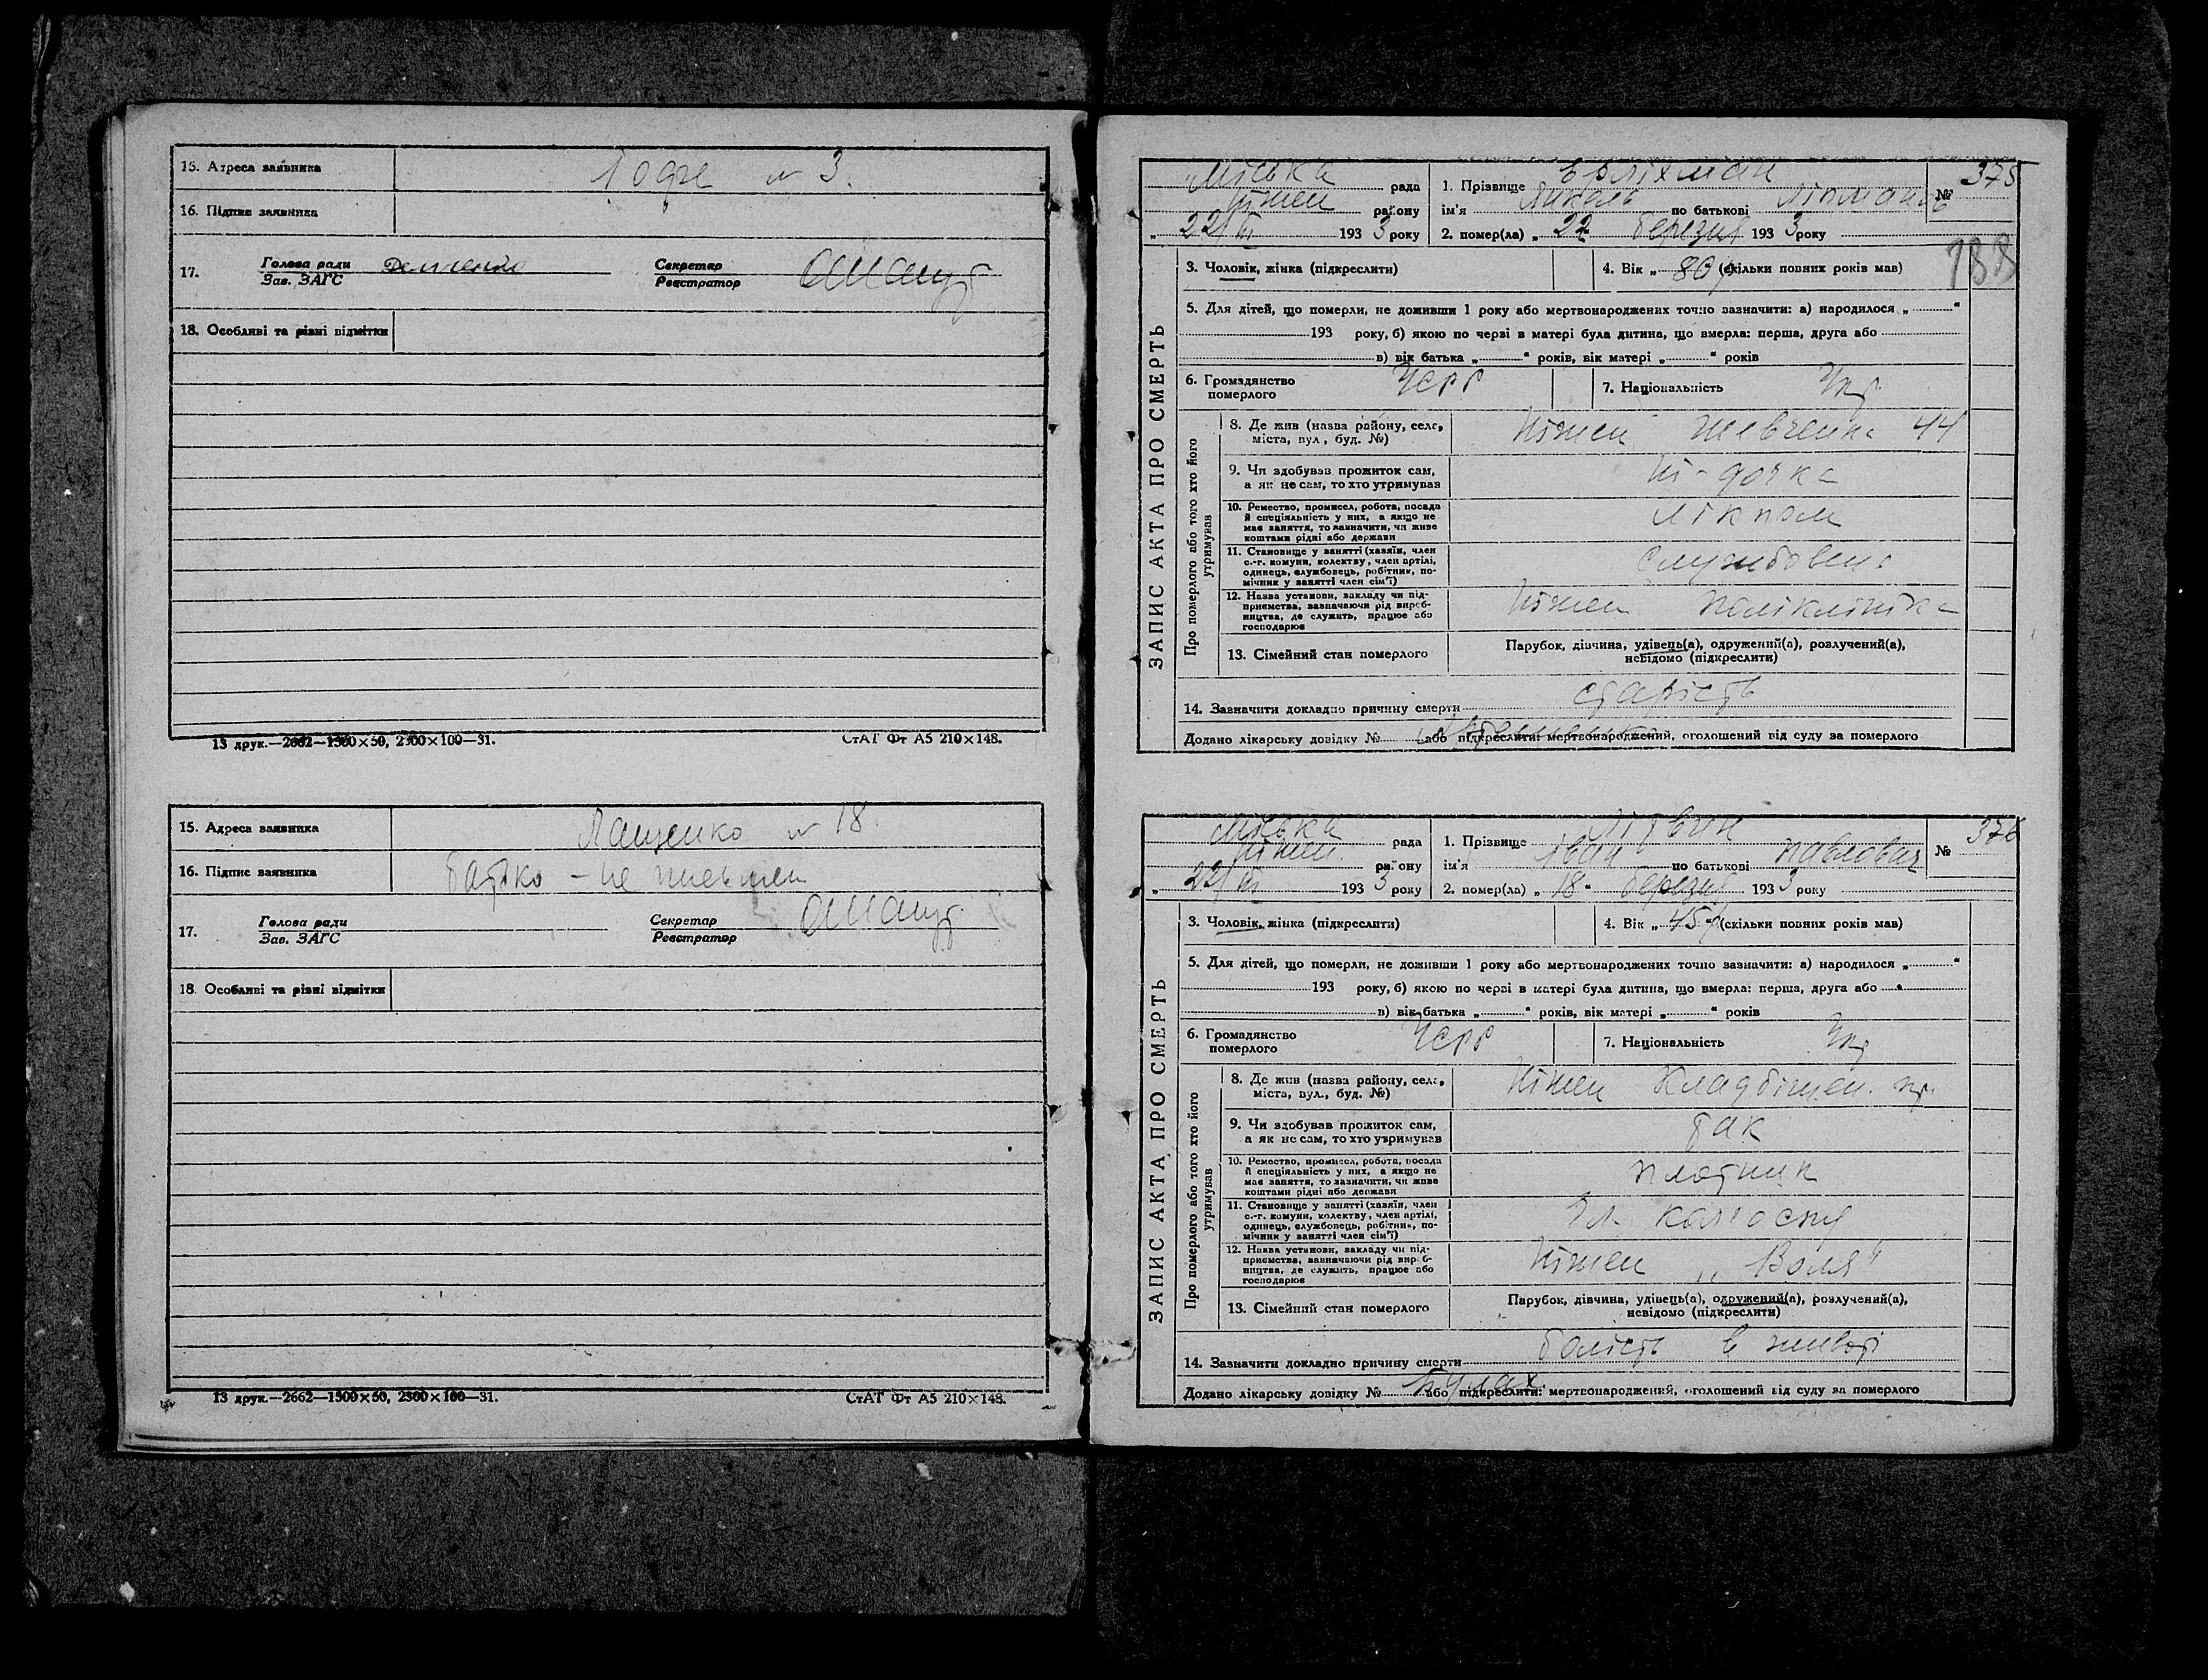 15. Адреса заявника
1 Одте № 3.
16. Підпис заявника
17. Голова ради Демченко Секретар
Зав. ЗАГС Реєстратор
18. Особливі та різні відмітки
13 друк.—2662—1500×50, 2300×100—31. СтАТ Фт А5 210×148.
15. Адреса заявника Лащенко № 18.
16. Підпис заявника батько – не письмен
17. Голова ради Секретар
Зав. ЗАГС Реєстратор
18. Особливі та різні відмітки
13 друк.—2662—1500×50, 2300×100—31. СтАТ Фт А5 210×148.
ЗАПИС АКТА ПРО СМЕРТЬ
Міська рада 1. Прізвище Ерліхман № 375
Ніжен району ім'я по батькові
„ 22/III 1933 року 2. помер(ла) „ 22 березня 1933 року
188
3. Чоловік, жінка (підкреслити) 4. Вік „ 80 (скільки повних років мав)
5. Для дітей, що померли, не доживши 1 року або мертвонароджених точно зазначити: а) народилося „ “
193 року, б) якою по черзі в матері була дитина, що вмерла: перша, друга або
в) вік батька „ “ років, вік матері „ “ років
6. Громадянство Усрр 7. Національність Укр.
померлого
Про померлого або того хто його утримував
8. Де жив (назва району, село, Ніжен Шевченка 44
міста, вул., буд. №)
9. Чи здобував прожиток сам, Ні - дочка
а як не сам, то хто утримував
10. Ремество, промисел, робота, посада лікпом
й спеціяльність у них, а якщо не
має заняття, то зазначити, чи живе
коштами рідні або держави
11. Становище у занятті (хазяїн, член службовець
с.-г. комуни, колектву, член артілі,
одинець, службовець, робітник, по-
мічник у занятті член сім'ї)
12. Назва установи, закладу чи під- Ніжен поліклініка
приємства, зазначаючи рід вироб-
ництва, де служить, працює або
господарює
13. Сімейний стан померлого Парубок, дівчина, удівець(а), одружений(а), розлучений(а),
невідомо (підкреслити)
14. Зазначити докладно причину смерти старість
Додано лікарську довідку № або підкреслити: мертвонароджений, оголошений від суду за померлого
ЗАПИС АКТА ПРО СМЕРТЬ
Міська рада 1. Прізвище Літвин № 376
Ніжен району ім'я Іван по батькові Павлович
„ 22/III 1933 року 2. помер(ла) „ 18 “ березня 1933 року
3. Чоловік, жінка (підкреслити) 4. Вік „ 45 “ (скільки повних років мав)
5. Для дітей, що померли, не доживши 1 року або мертвонароджених точно зазначити: а) народилося „ “
193 року, б) якою по черзі в матері була дитина, що вмерла: перша, друга або
в) вік батька „ “ років, вік матері „ “ років
6. Громадянство Усрр 7. Національність Укр
померлого
Про померлого або того хто його утримував
8. Де жив (назва району, село, Ніжен Кладбіщен. пр.
міста, вул., буд. №)
9. Чи здобував прожиток сам, так
а як не сам, то хто утримував
10. Ремество, промисел, робота, посада плотник
й спеціяльність у них, а якщо не
має заняття, то зазначити, чи живе
коштами рідні або держави
11. Становище у занятті (хазяїн, член чл. колгоспу
с.-г. комуни, колектву, член артілі,
одинець, службовець, робітник, по-
мічник у занятті член сім'ї)
12. Назва установи, закладу чи під- Ніжен „Воля“
приємства, зазначаючи рід вироб-
ництва, де служить, працює або
господарює
13. Сімейний стан померлого Парубок, дівчина, удівець(а), одружений(а), розлучений(а),
невідомо (підкреслити)
14. Зазначити докладно причину смерти болість в животі
Додано лікарську довідку № Кулах або підкреслити: мертвонароджений, оголошений від суду за померлого